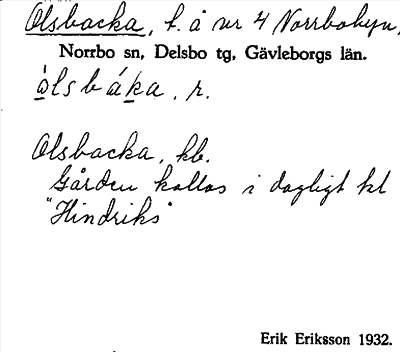 Olsbacka, t. å nr 4 Norrbobyn,
Norrbo sn, Delsbo tg, Gävleborgs län.
òlsbáka, r.
Olsbacka, kb.
Gården kallas i dagligt tal
"Hindriks"
Erik Eriksson 1932.